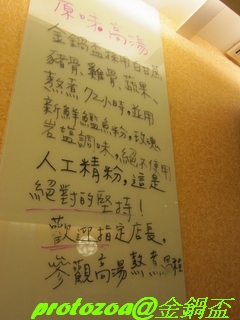 原味高湯
金鍋盃採用白甘蔗
豬骨、雞骨、蔬果、
熬煮72小時,並用
新鮮鱸魚粉,玫瑰
岩鹽調味,絕不使用
人工精粉,這是
絕對的堅持!
歡迎指定店長,
參觀高湯熬煮過程
protozoa@金鍋盃